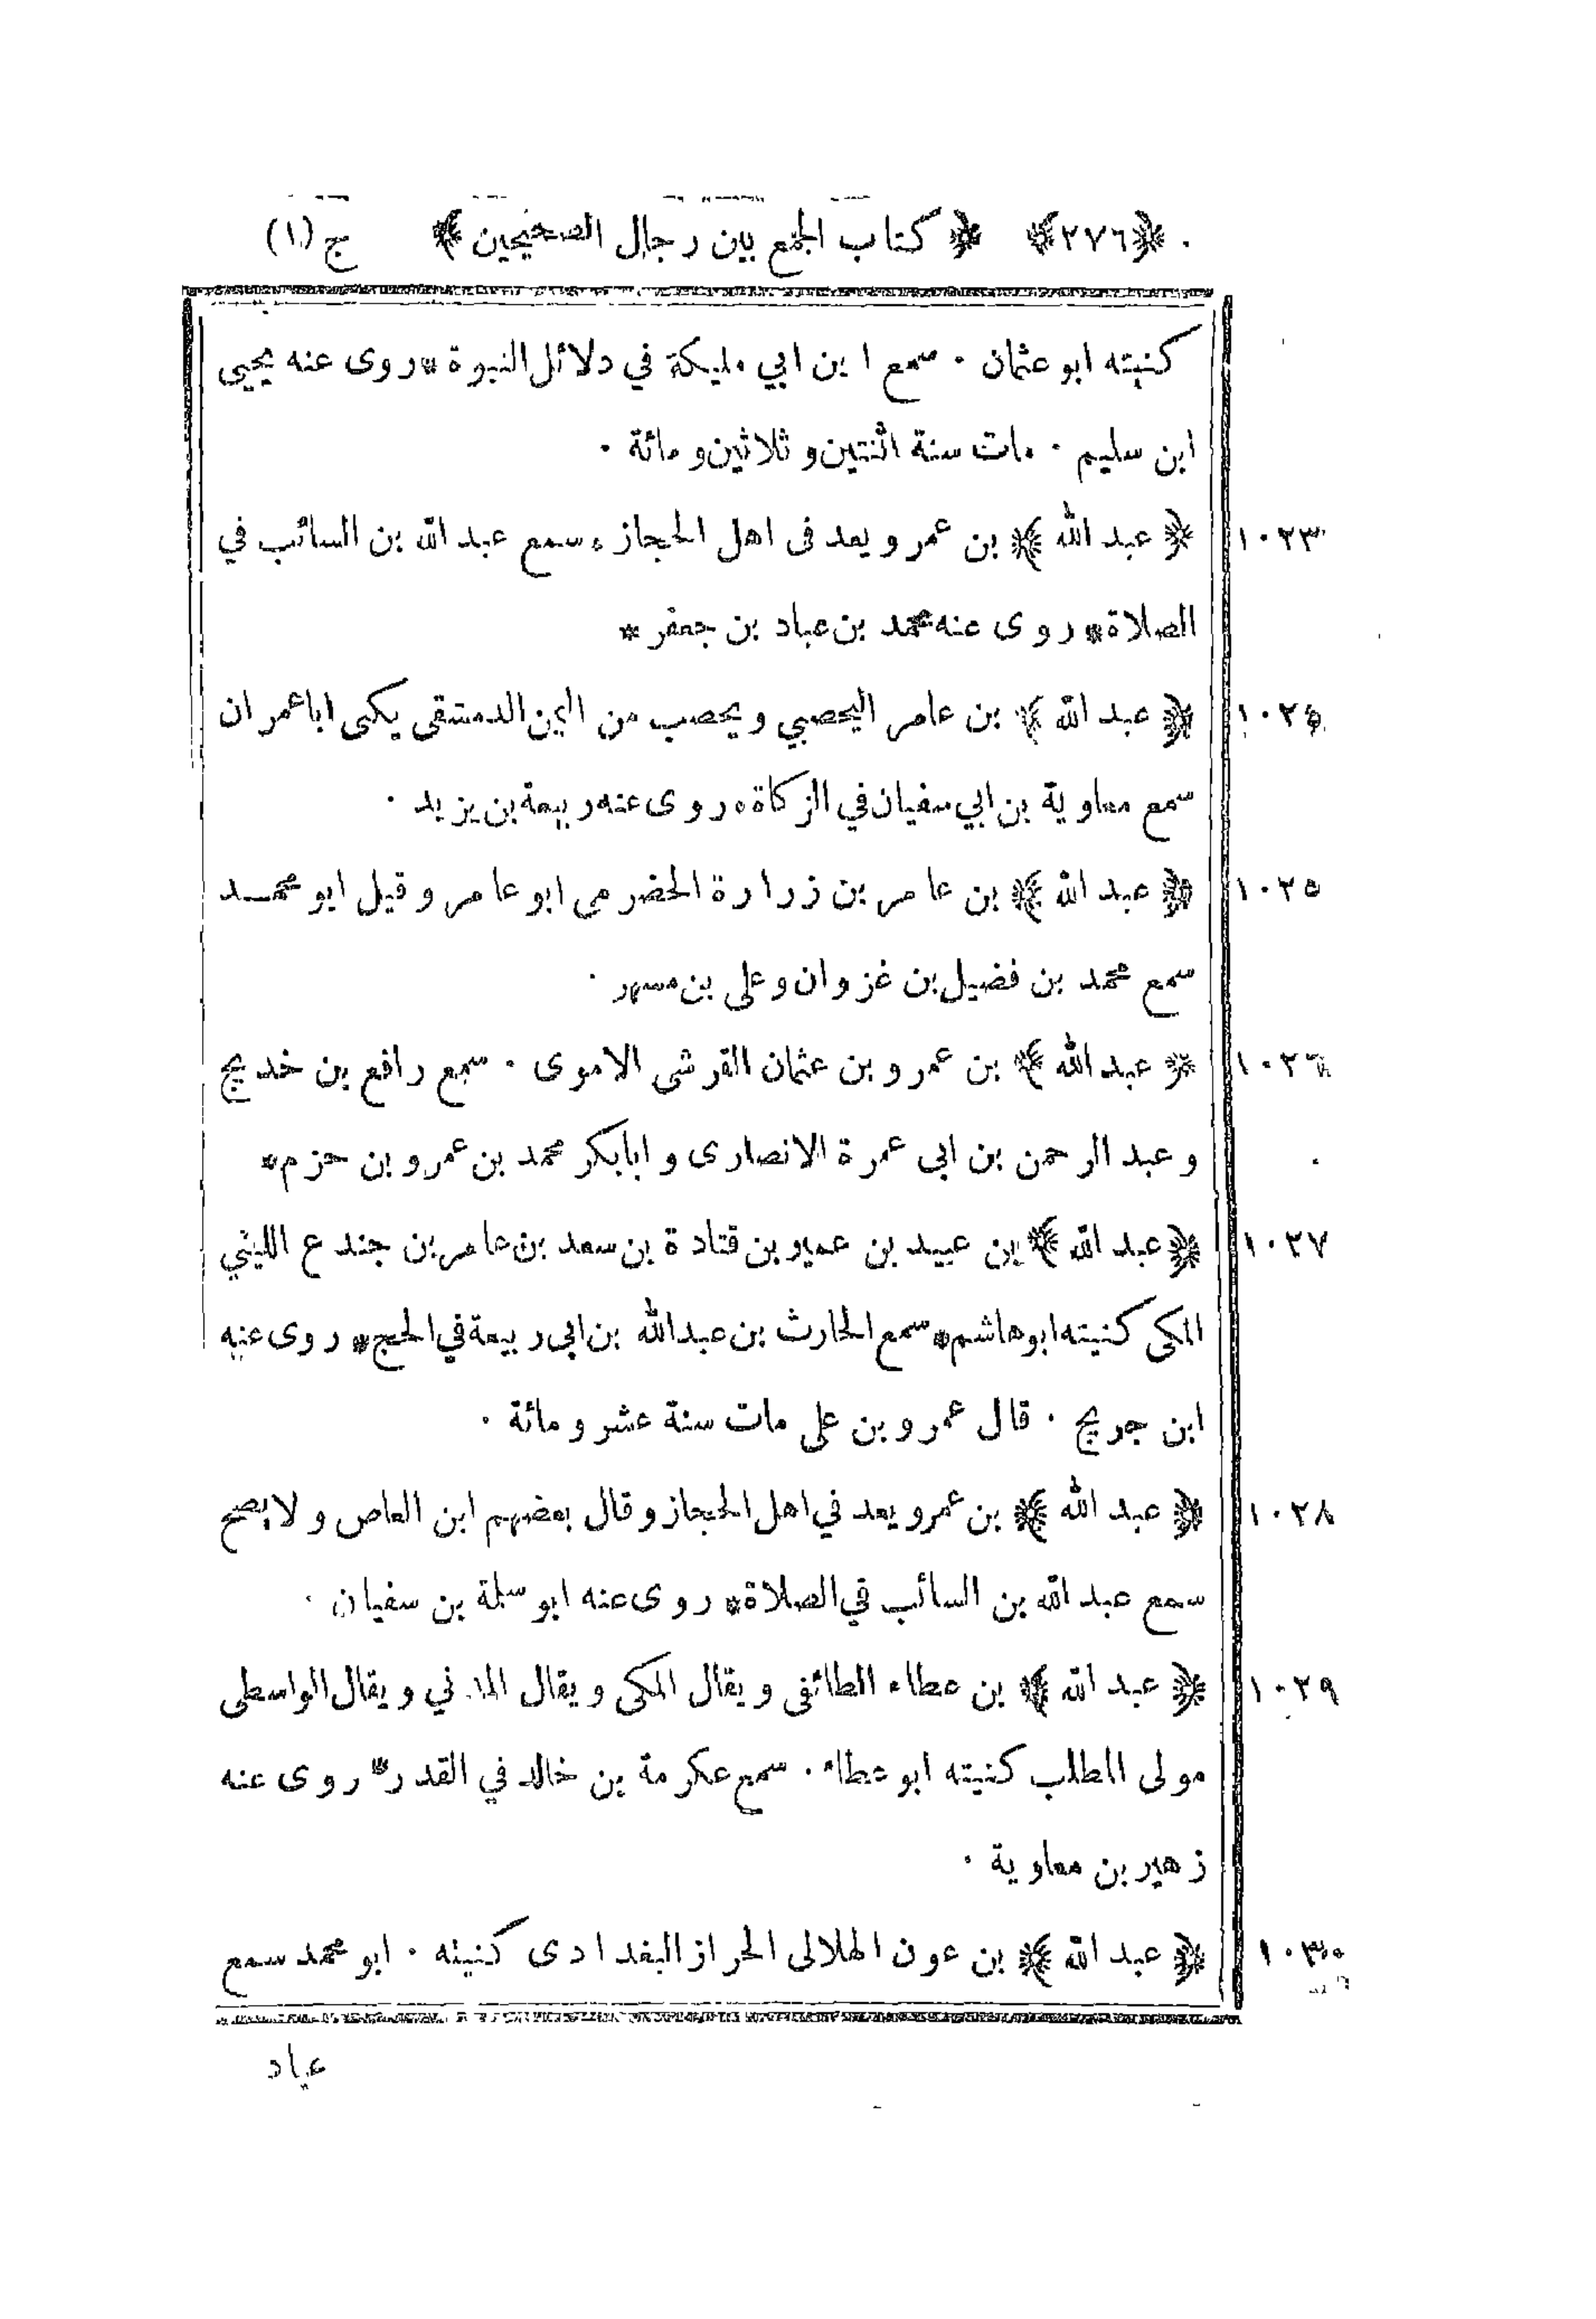 ﴿٢٧٦﴾ ﴿ كتاب الجمع بين رجال الصحيحين ﴾ ج (١)
كنيته ابو عثمان ٠ سمع ابن ابي مليكة في دلائل النبوة * روى عنه يحيى
ابن سليم ٠ مات سنة اثنتين و ثلاثين و مائة ٠
١٠٢٣ ﴿ عبد الله ﴾ بن عمرو يعد فى اهل الحجاز ٠ سمع عبد الله بن السائب في
الصلاة * روى عنه محمد بن عباد بن جعفر *
١٠٢٤ ﴿ عبد الله ﴾ بن عامر اليحصبي و يحصب من اليمن الدمشقى يكنى اباعمران
سمع معاوية بن ابي سفيان في الزكاة ٠ روى عنه ربيعة بن يزيد ٠
١٠٢٥ ﴿ عبد الله ﴾ بن عامر بن زرارة الحضرمى ابو عامر و قيل ابو محمد
سمع محمد بن فضيل بن غزوان و على بن مسهر ٠
١٠٢٦ ﴿ عبد الله ﴾ بن عمرو بن عثمان القرشى الاموى ٠ سمع رافع بن خديج
و عبد الرحمن بن ابى عمرة الانصارى و ابابكر محمد بن عمرو بن حزم *
١٠٢٧ ﴿ عبد الله ﴾ بن عبيد بن عمير بن قتادة بن سعد بن عامر بن جندع الليثي
المكى كنيته ابو هاشم * سمع الحارث بن عبد الله بن ابى ربيعة في الحج * روى عنه
ابن جريج ٠ قال عمرو بن على مات سنة عشر و مائة ٠
١٠٢٨ ﴿ عبد الله ﴾ بن عمرو يعد في اهل الحجاز و قال بعضهم ابن العاص و لا يصح
سمع عبد الله بن السائب في الصلاة * روى عنه ابو سلمة بن سفيان ٠
١٠٢٩ ﴿ عبد الله ﴾ بن عطاء الطائفى و يقال المكى و يقال المدني و يقال الواسطى
مولى المطلب كنيته ابو عطاء ٠ سمع عكرمة بن خالد في القدر * روى عنه
زهير بن معاوية ٠
١٠٣٠ ﴿ عبد الله ﴾ بن عون الهلالى الحراز البغدادى كنيته ٠ ابو محمد سمع
عباد